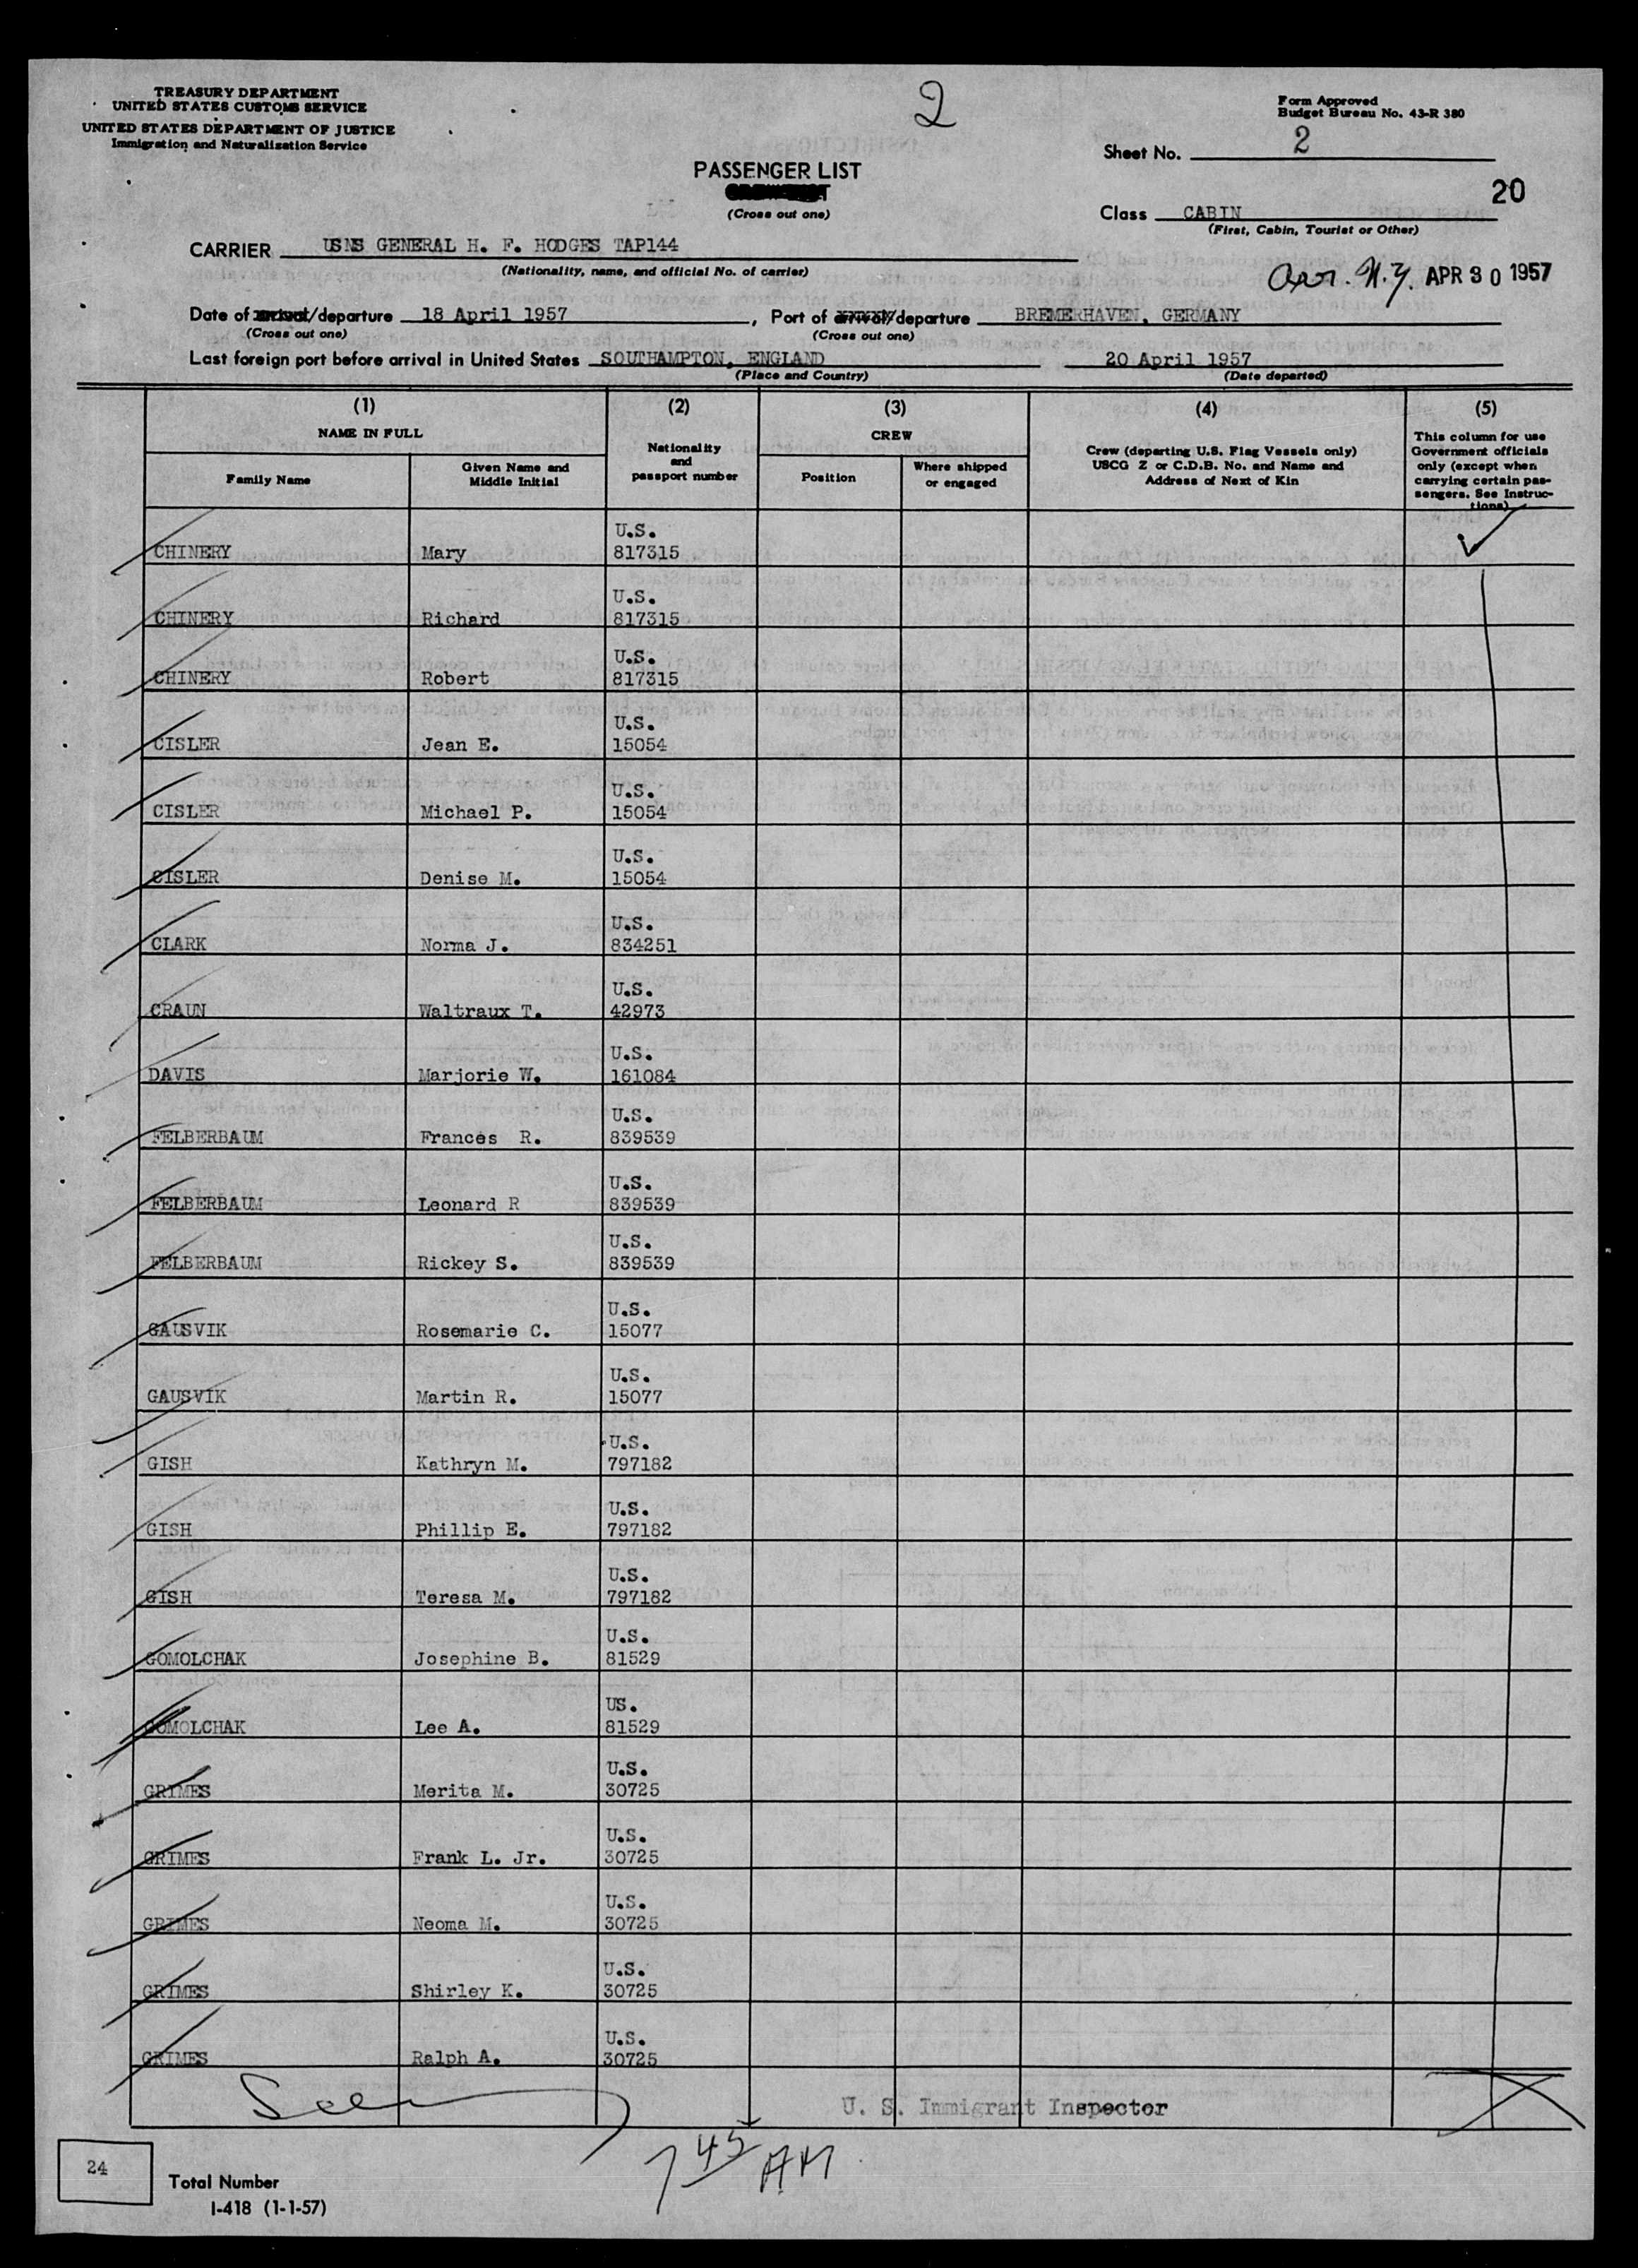 TREASURY DEPARTMENT
UNITED STATES CUSTOMS SERVICE
UNITED STATES DEPARTMENT OF JUSTICE
Immigration and Naturalization Service
2
Form Approved
Budget Bureau No. 43-R 380
Sheet No. 2
PASSENGER LIST
(Cross out one)
20
Class CABIN
(First, Cabin, Tourist or Other)
CARRIER USNS GENERAL H. F. HODGES TAP144
(Nationality, name, and official No. of carrier)
Arr. N.Y. APR 30 1957
Date of arrival/departure 18 April 1957, Port of arrival/departure BREMERHAVEN, GERMANY
(Cross out one) (Cross out one)
Last foreign port before arrival in United States SOUTHAMPTON, ENGLAND 20 April 1957
(Place and Country) (Date departed)
(1) (2) (3) (4) (5)
NAME IN FULL
Family Name
Given Name and
Middle Initial
Nationality
and
passport number
CREW
Position
Where shipped
or engaged
Crew (departing U.S. Flag Vessels only)
USCG Z or C.D.B. No. and Name and
Address of Next of Kin
This column for use
Government officials
only (except when
carrying certain pas-
sengers. See Instruc-
tions)
U.S.
CHINERY Mary 817315
U.S.
CHINERY Richard 817315
U.S.
CHINERY Robert 817315
U.S.
CISLER Jean E. 15054
U.S.
CISLER Michael P. 15054
U.S.
CISLER Denise M. 15054
U.S.
CLARK Norma J. 834251
U.S.
CRAUN Waltraux T. 42973
U.S.
DAVIS Marjorie W. 161084
U.S.
FELBERBAUM Frances R. 839539
U.S.
FELBERBAUM Leonard R 839539
U.S.
FELBERBAUM Rickey S. 839539
U.S.
GAUSVIK Rosemarie C. 15077
U.S.
GAUSVIK Martin R. 15077
U.S.
GISH Kathryn M. 797182
U.S.
GISH Phillip E. 797182
U.S.
GISH Teresa M. 797182
U.S.
GOMOLCHAK Josephine B. 81529
US.
GOMOLCHAK Lee A. 81529
U.S.
GRIMES Merita M. 30725
U.S.
GRIMES Frank L. Jr. 30725
U.S.
GRIMES Neoma M. 30725
U.S.
GRIMES Shirley K. 30725
U.S.
GRIMES Ralph A. 30725
Seen
U. S. Immigrant Inspector
7 45 AM
24
Total Number
I-418 (1-1-57)